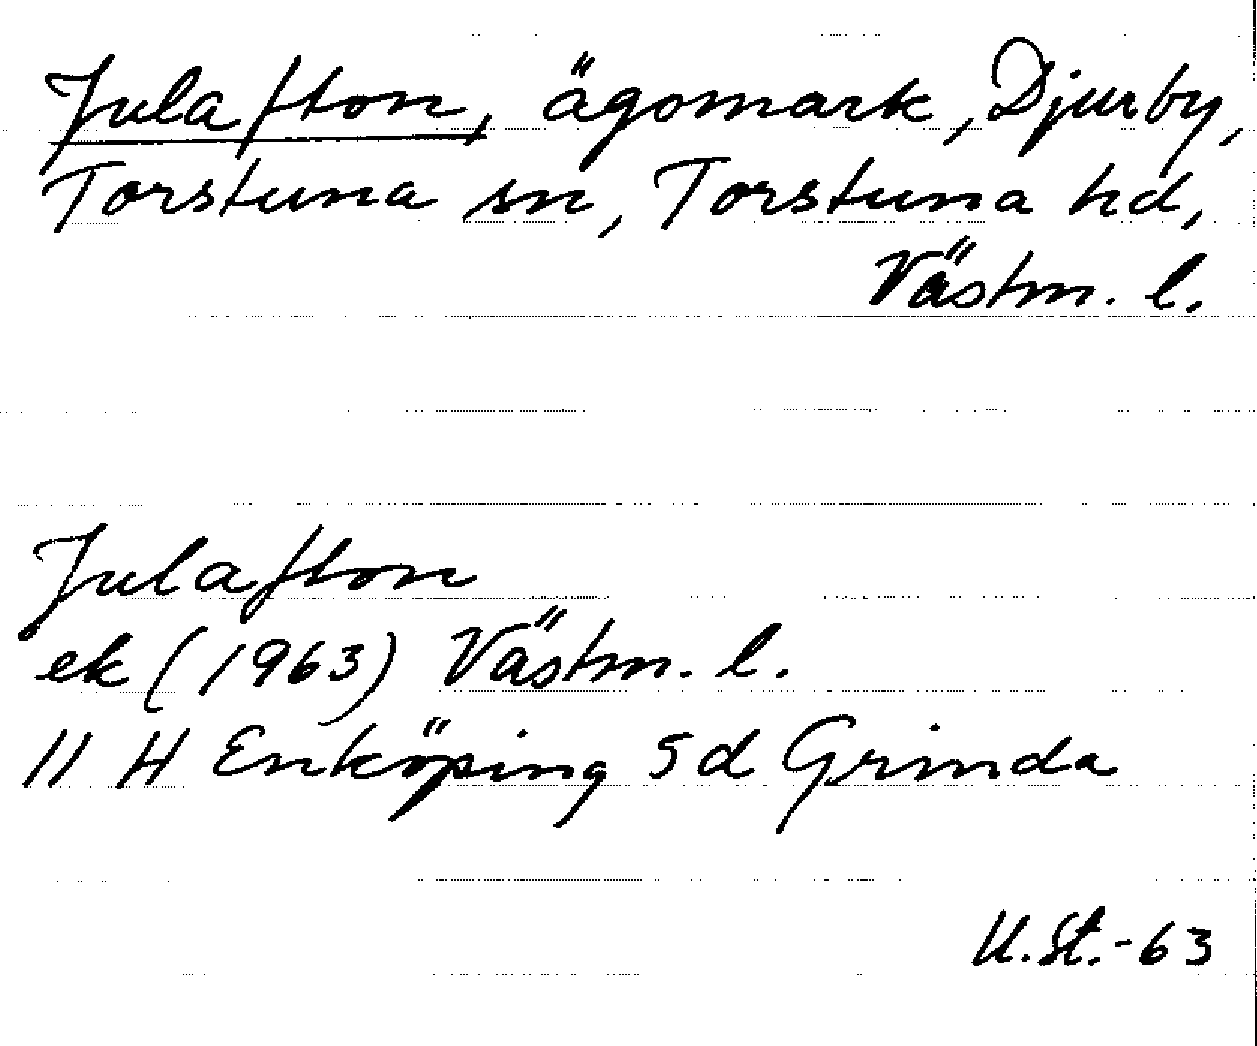 Julafton, ägomark, Djurby,
Torstuna sn, Torstuna hd,
Västm. l.
Julafton
ek (1963) Västm. l.
11 H Enköping 5d Grinda
U.St.-63